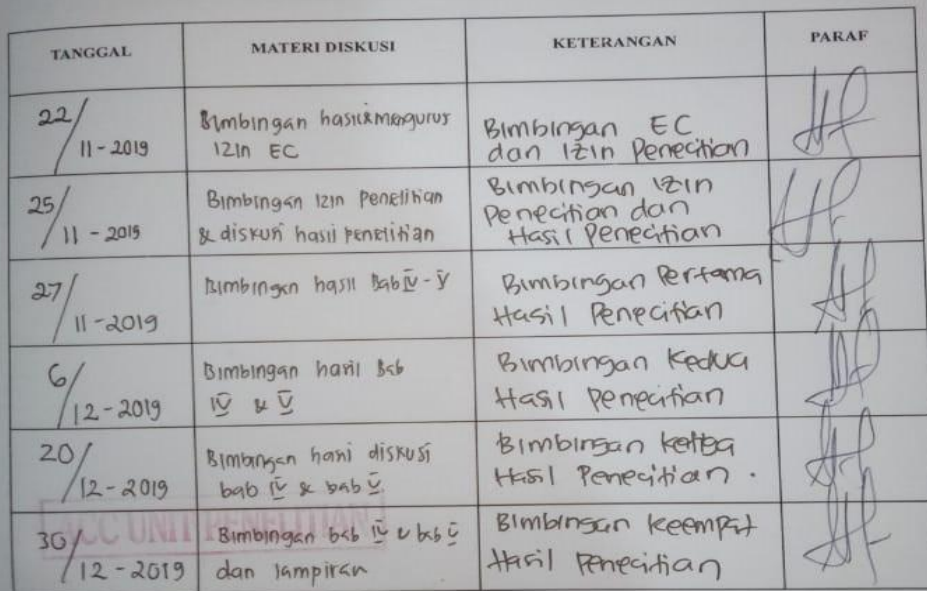 TANGGAL MATERI DISKUSI KETERANGAN PARAF
22/11-2019
Bimbingan hasil & mengurus
izin EC
Bimbingan EC
dan Izin Penelitian
25/11 - 2019
Bimbingan izin Penelitian
& diskusi hasil penelitian
Bimbingan izin
Penelitian dan
Hasil Penelitian
27/11-2019
Bimbingan hasil Bab IV - V
Bimbingan Pertama
Hasil Penelitian
6/12-2019
Bimbingan hasil Bab
IV & V
Bimbingan Kedua
Hasil Penelitian
20/12-2019
Bimbingan hasil diskusi
bab IV & bab V
Bimbingan ketiga
Hasil Penelitian.
30/12-2019
Bimbingan bab IV & bab V
dan lampiran
Bimbingan keempat
Hasil Penelitian
ACC UNIT PENELITIAN